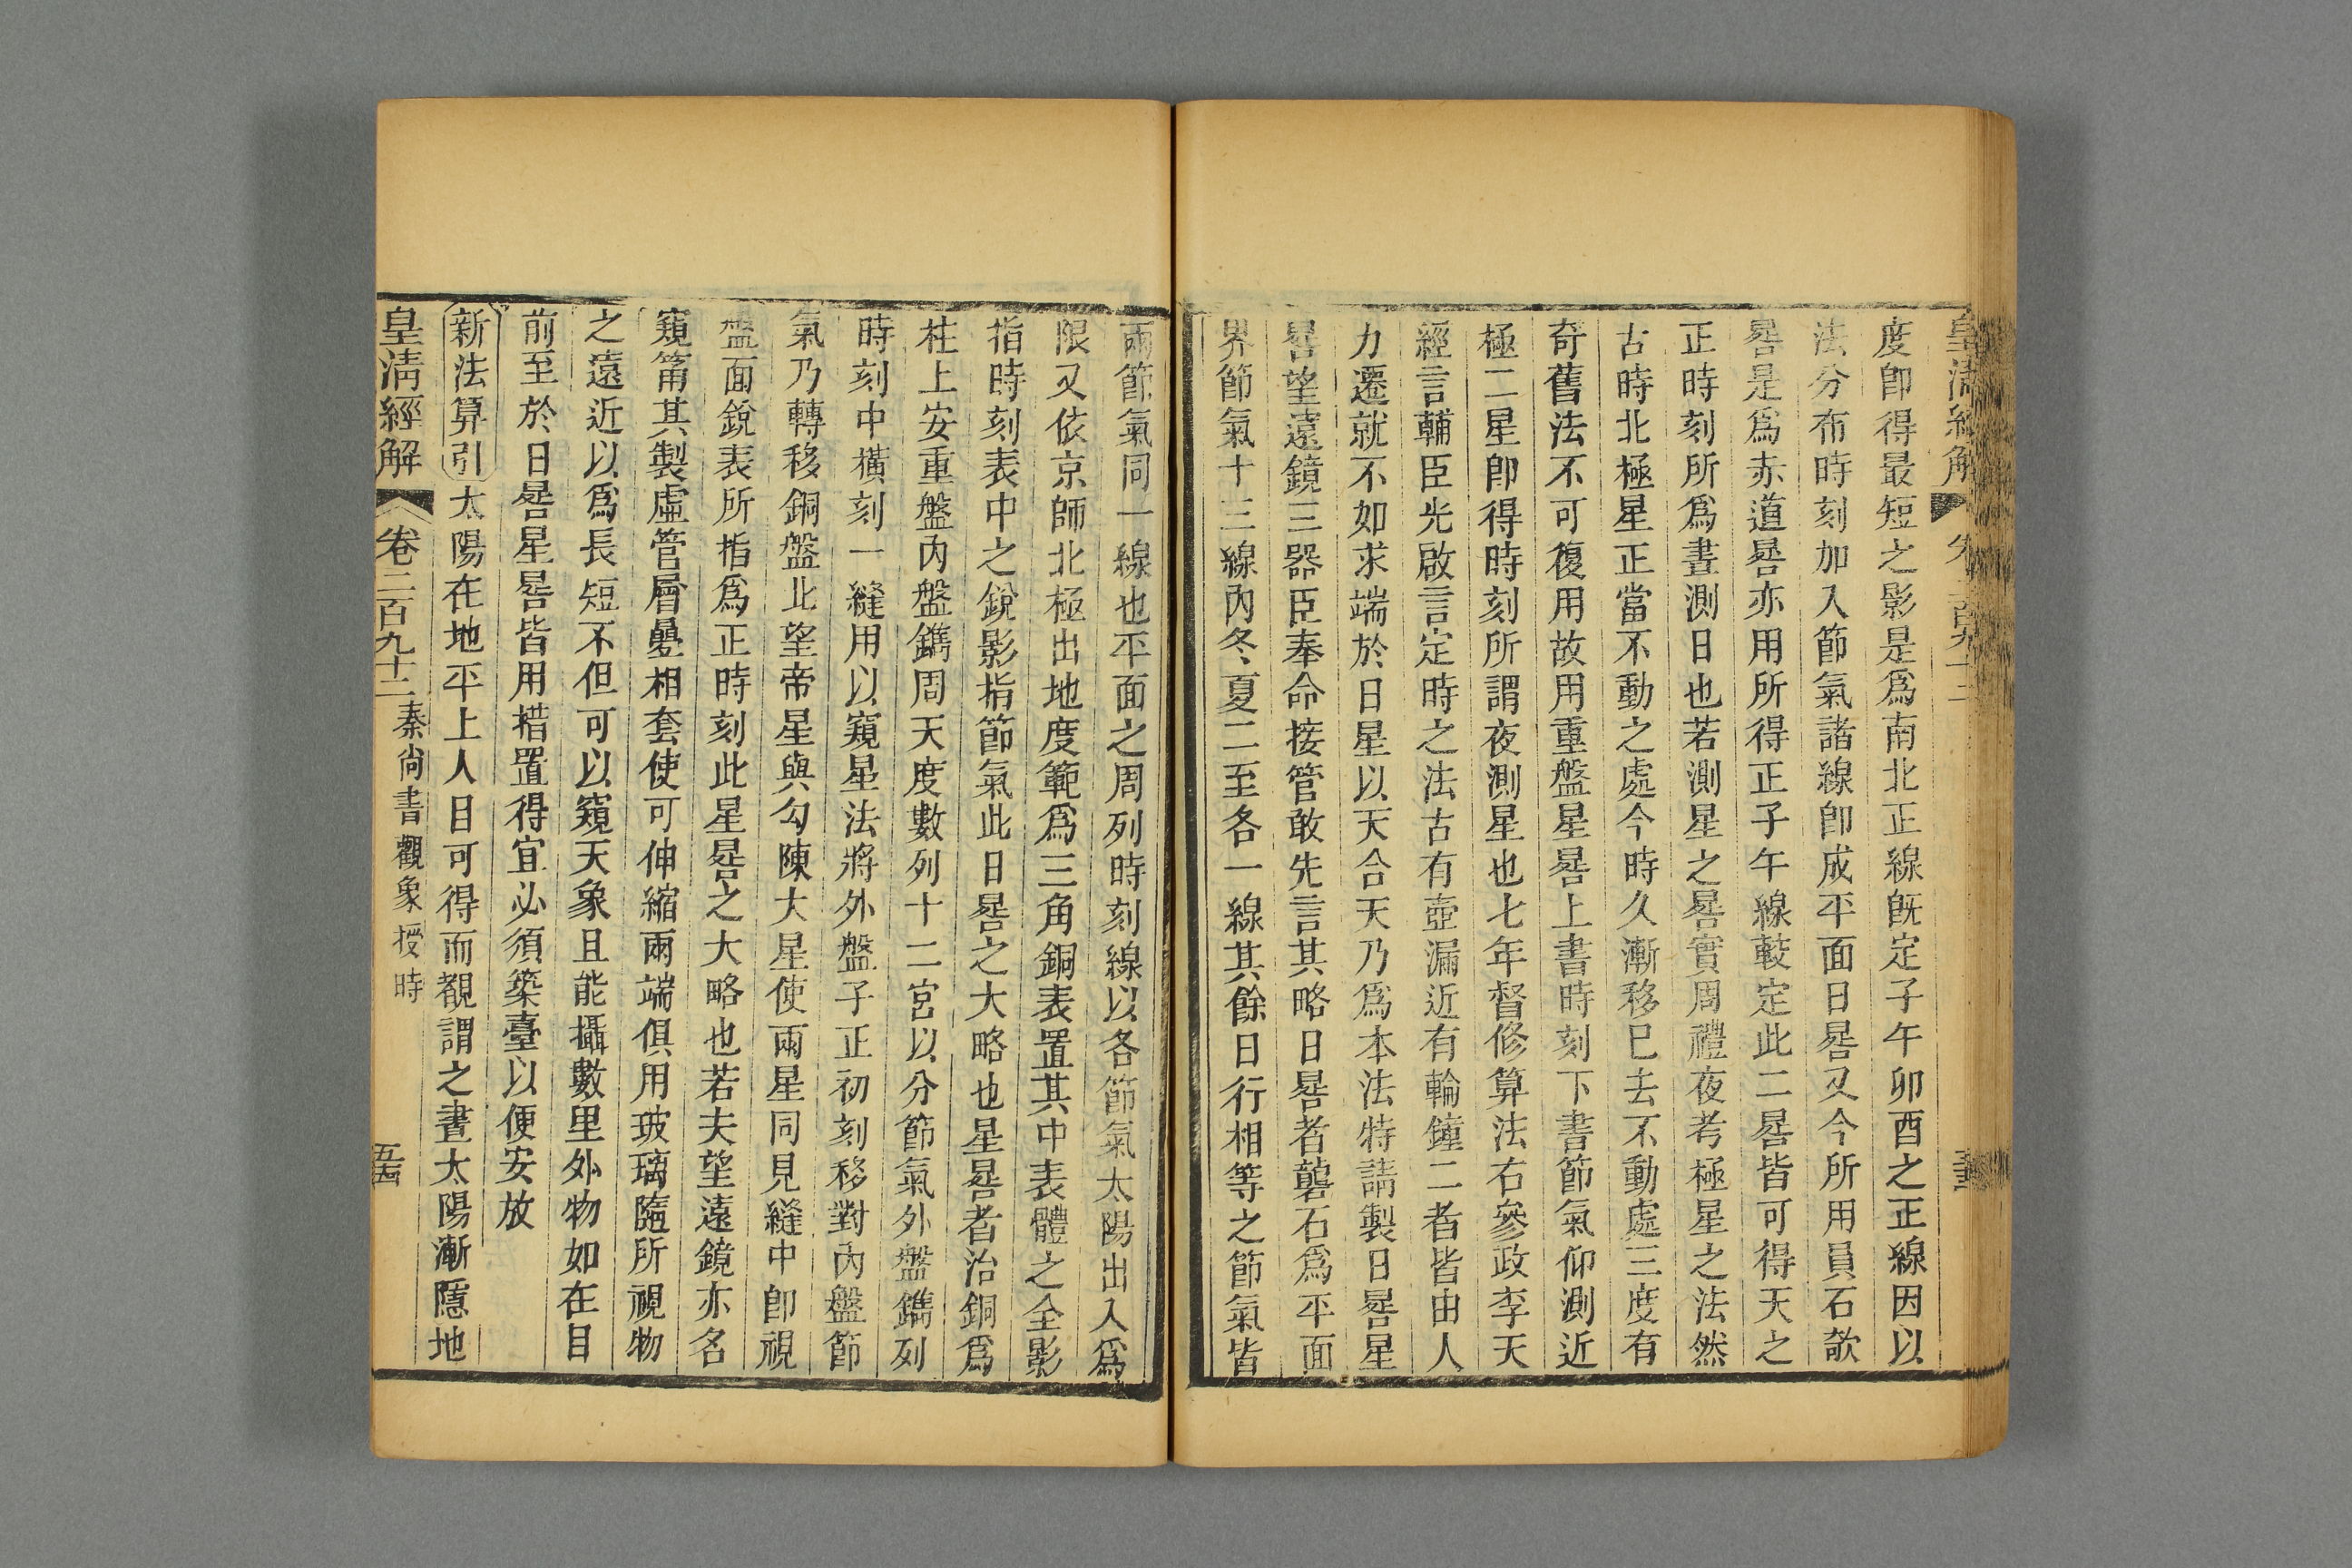 度卽得最短之影是爲南北正線旣定子午卯酉之正線因以
法分布時刻加入節氣諸線卽成平面日晷又今所用員石欹
晷是爲赤道晷亦用所得正子午線較定此二晷皆可得天之
正時刻所爲晝測日也若測星之晷實周禮夜考極星之法然
古時北極星正當不動之處今時久漸移已去不動處三度有
奇舊法不可復用故用重盤星晷上書時刻下書節氣仰測近
極二星卽得時刻所謂夜測星也七年督修算法右參政李天
經言輔臣光啟言定時之法古有壺漏近有輪鐘二者皆由人
力遷就不如求端於日星以天合天乃爲本法特請製日晷星
晷望遠鏡三器臣奉命接管敢先言其略日晷者礱石爲平面
界節氣十三線內冬夏二至各一線其餘日行相等之節氣皆
兩節氣同一線也平面之周列時刻線以各節氣太陽出入爲
限又依京師北極出地度範爲三角銅表置其中表體之全影
指時刻表中之銳影指節氣此日晷之大略也星晷者治銅爲
柱上安重盤內盤鐫周天度數列十二宮以分節氣外盤鐫列
時刻中橫刻一縫用以窺星法將外盤子正初刻移對內盤節
氣乃轉移銅盤北望帝星與勾陳大星使兩星同見縫中卽視
盤面銳表所指爲正時刻此星晷之大略也若夫望遠鏡亦名
窺筩其製虛管層疊相套使可伸縮兩端俱用玻璃隨所視物
之遠近以爲長短不但可以窺天象且能攝數里外物如在目
前至於日晷星晷皆用措置得宜必須築臺以便安放
新法算引太陽在地平上人目可得而覩謂之晝太陽漸隱地
皇淸經解 卷二百九十二 秦尙書觀象授時 五四